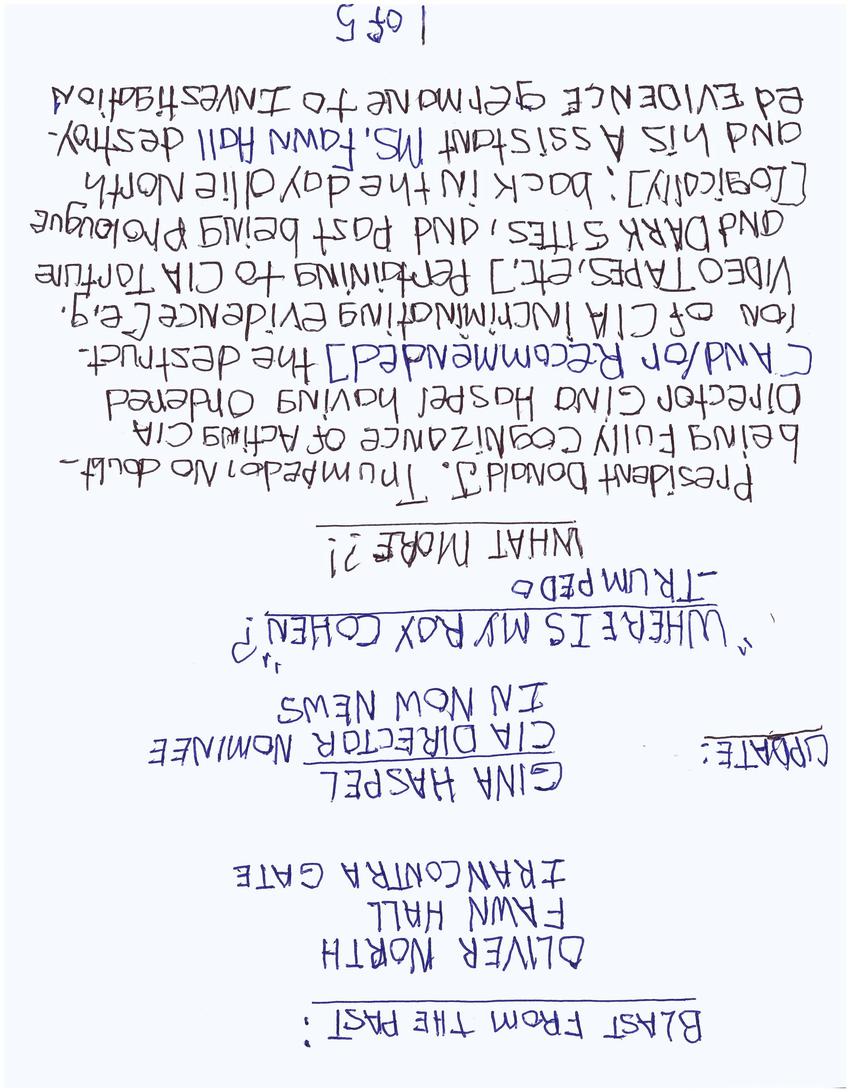 BLAST FROM THE PAST:
OLIVER NORTH
FAWN HALL
IRANCONTRA GATE
UPDATE:
GINA HASPEL
CIA DIRECTOR NOMINEE
IN NOW NEWS
"WHERE IS MY ROY COHEN"?
-TRUMPEDO
WHAT MORE?!
President Donald J. Trumpedo, No doubt-
being Fully Cognizance of Acting CIA
Director Gina Haspel having Ordered
[AND/or Recommended] the destruct-
ion of CIA INcriminating Evidence [e.g.
VIDEO TAPES, etc,] Pertaining to CIA Torture
and DARK SITES, and Past being Prolougue
[logically]; back in the day Olie North
and his Assistant MS. Fawn Hall destroy-
ed EVIDENCE germane to Investigation
1 of 5